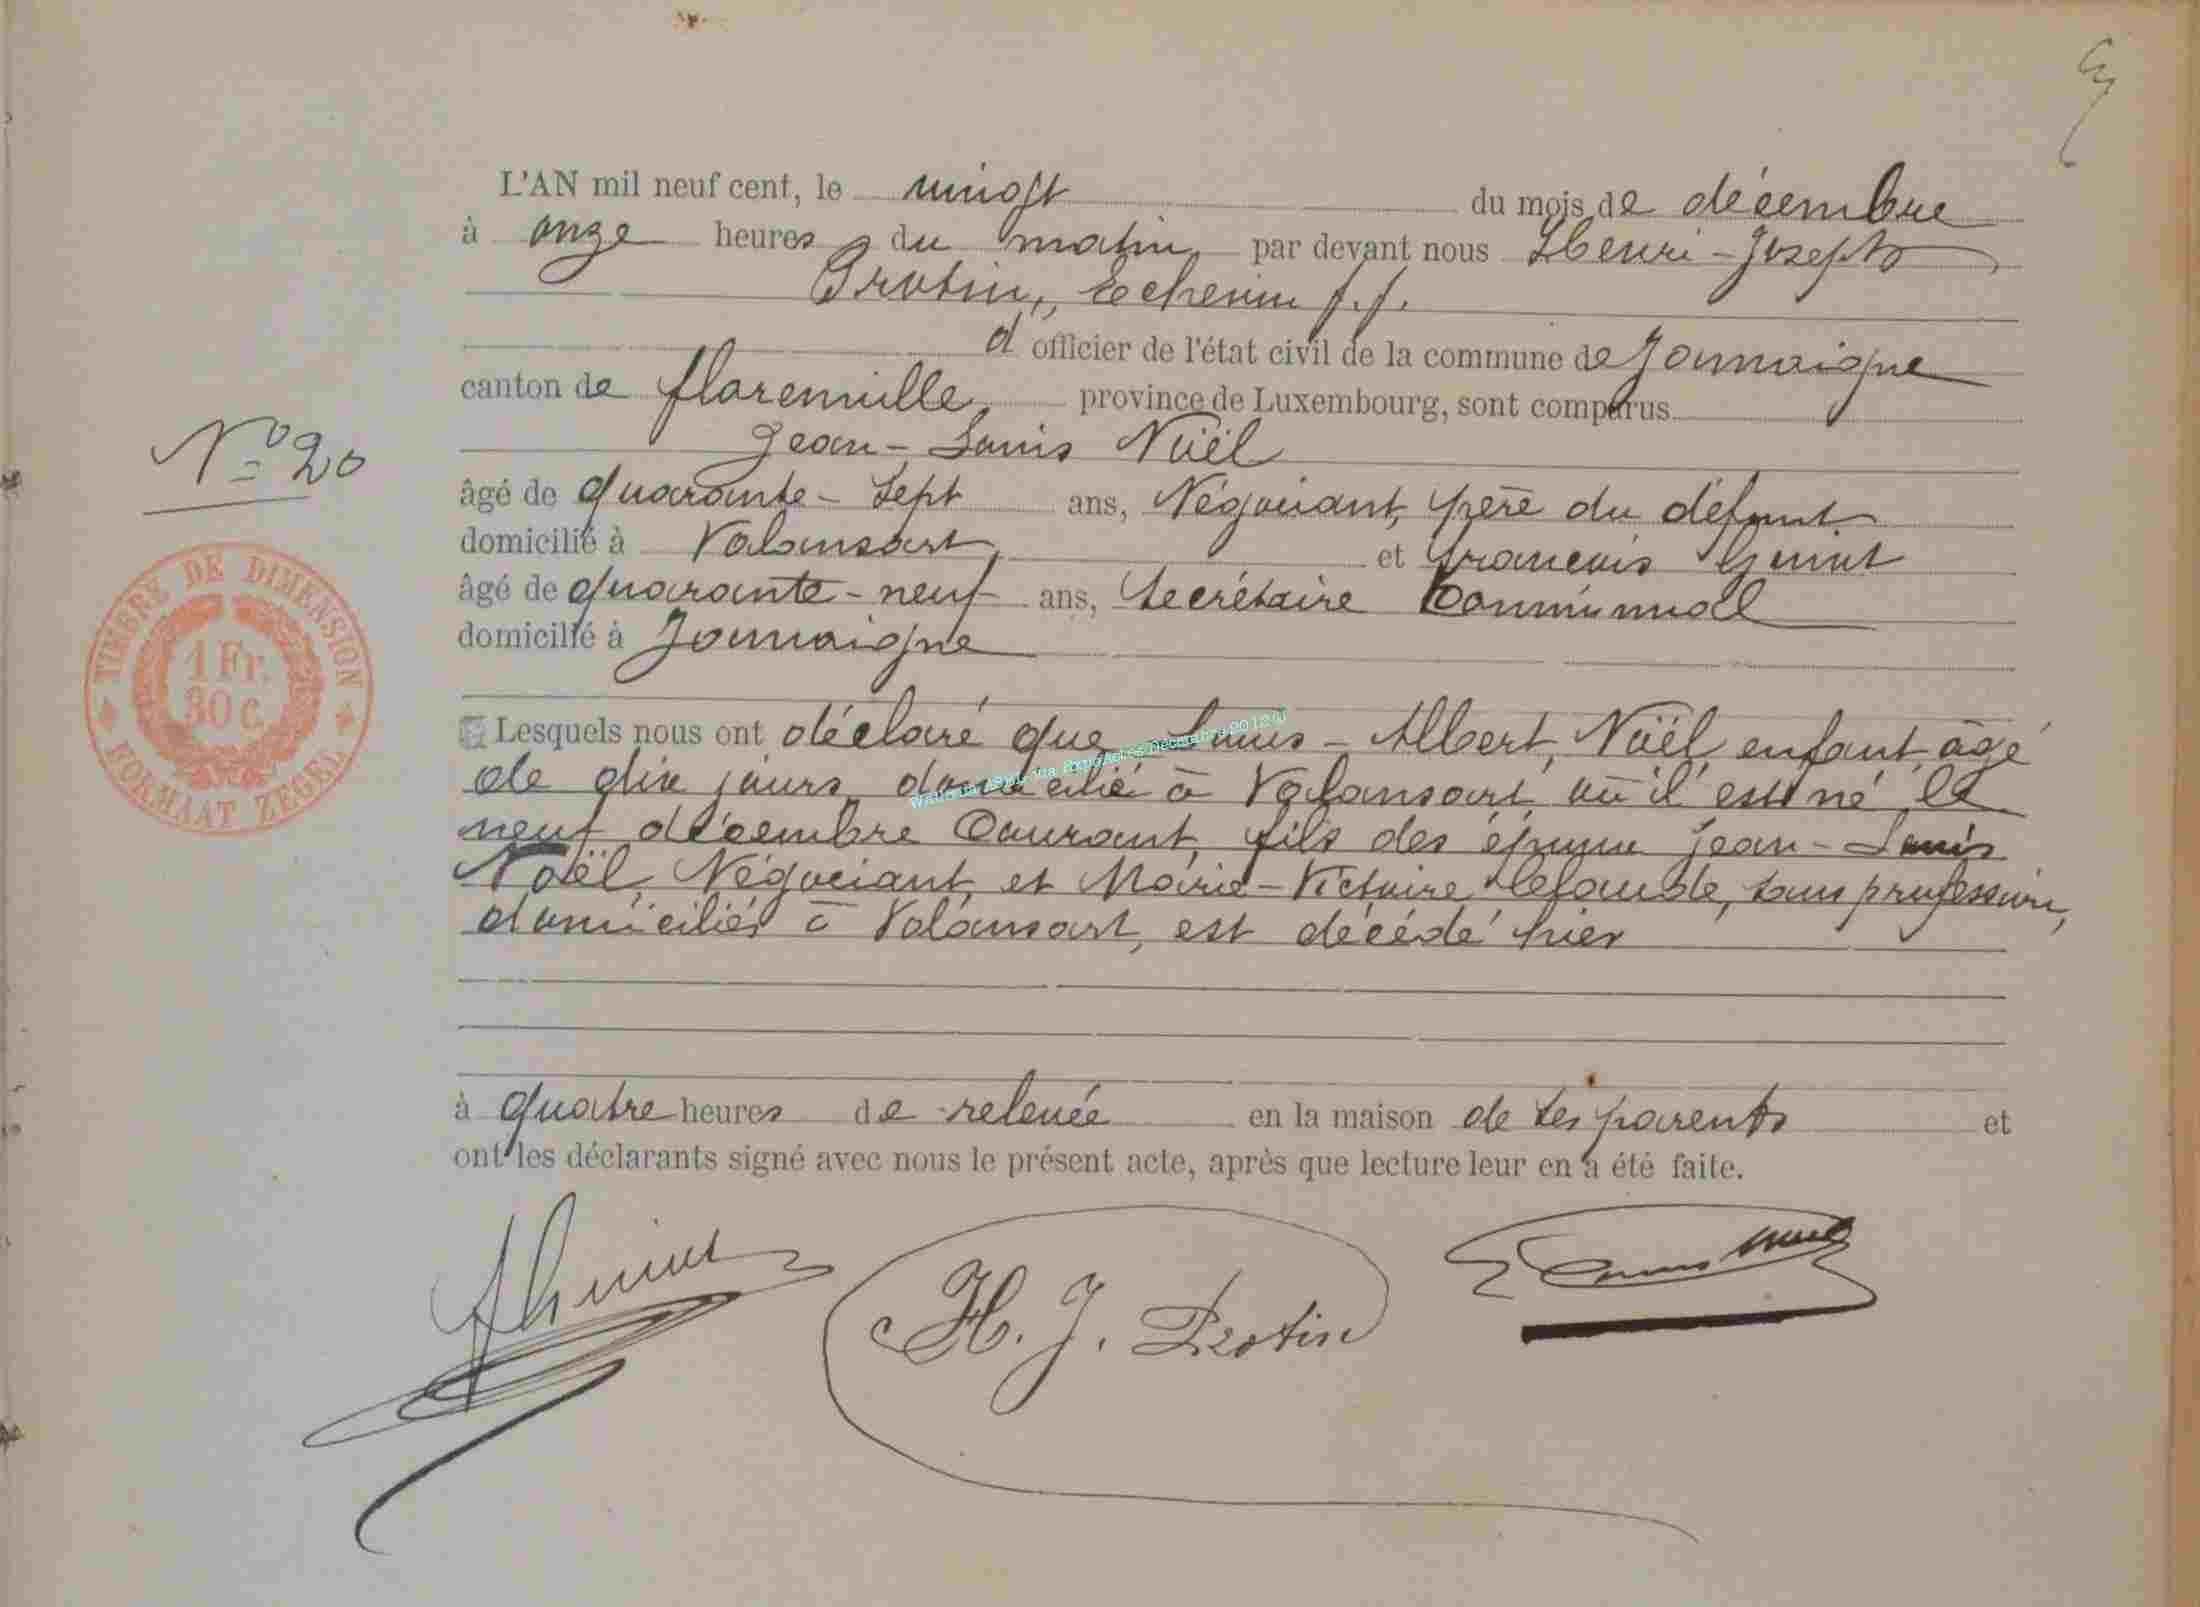 L'AN mil neuf cent, le vingt du mois de décembre
à onze heures du matin, par devant nous Henri-Joseph
Protin, Echevin f.f.
d'officier de l'état civil de la commune de Jamoigne
canton de Florenville, province de Luxembourg, sont comparus
Jean-Louis Noël
N° 20
âgé de quarante-sept ans, Négociant, père du défunt
domicilié à Valansart, et François Guiot
âgé de quarante-neuf ans, Secrétaire Communal
domicilié à Jamoigne
TIMBRE DE DIMENSION
1 Fr.
30 c.
FORMAAT ZEGEL
Lesquels nous ont déclaré que Louis-Albert, Noël, enfant, âgé
de dix jours, domicilié à Valansart, où il est né le
neuf décembre courant, fils des époux Jean-Louis
Noël, Négociant, et Marie-Victoire, sans profession,
domiciliés à Valansart, est décédé hier
à quatre heures de relevée en la maison de ses parents et
ont les déclarants signé avec nous le présent acte, après que lecture leur en a été faite.
H. J. Protin
Louis Noël